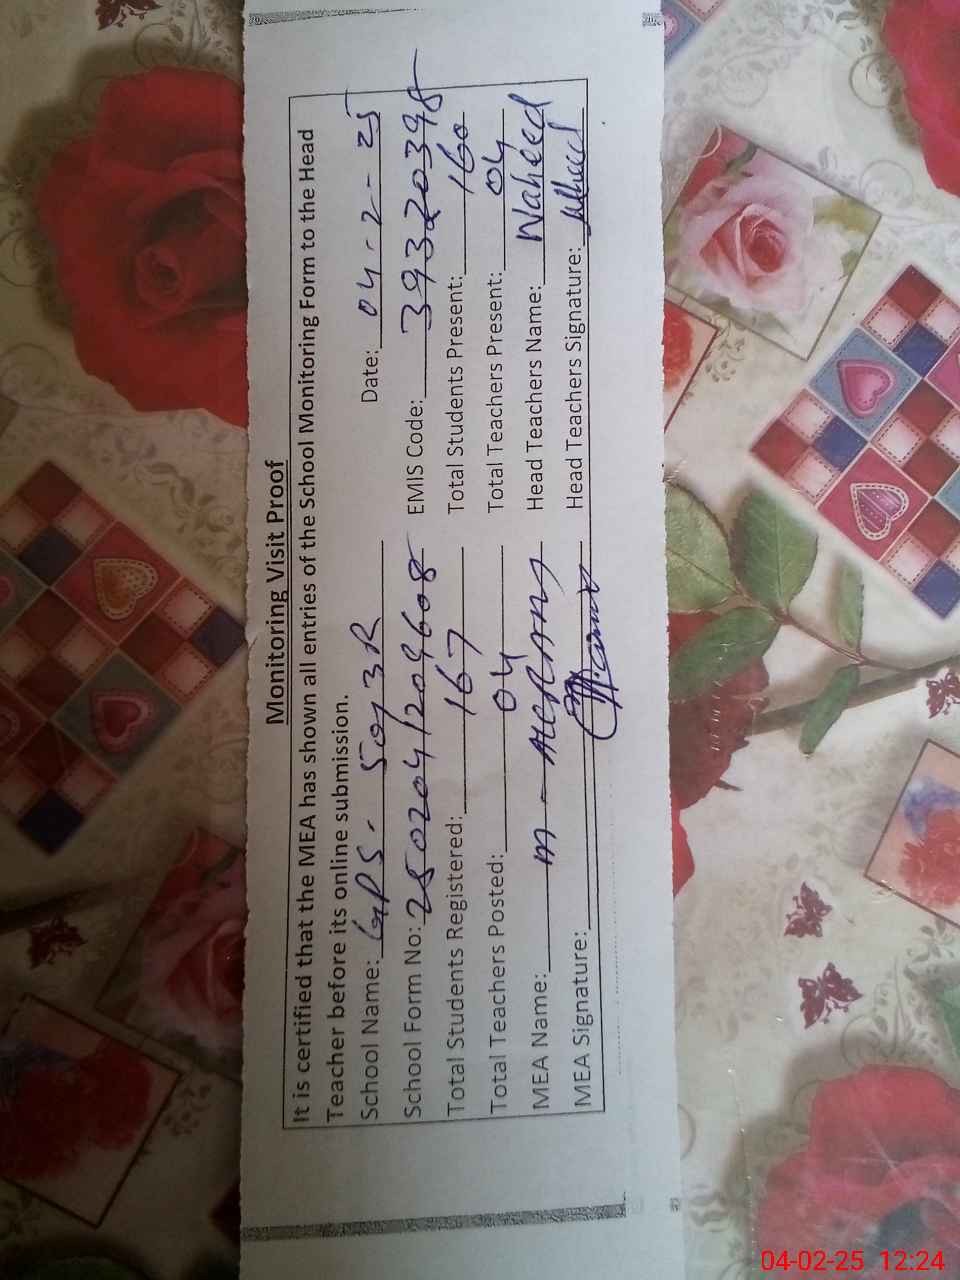 Monitoring Visit Proof
It is certified that the MEA has shown all entries of the School Monitoring Form to the Head
Teacher before its online submission.
School Name: GPS. 50/3R Date: 04-2-25
School Form No: 250204/209608 EMIS Code: 39320398
Total Students Registered: 167 Total Students Present: 160
Total Teachers Posted: 04 Total Teachers Present: 04
MEA Name: M Head Teachers Name: Waheed
MEA Signature: Head Teachers Signature: Waheed
04-02-25 12:24